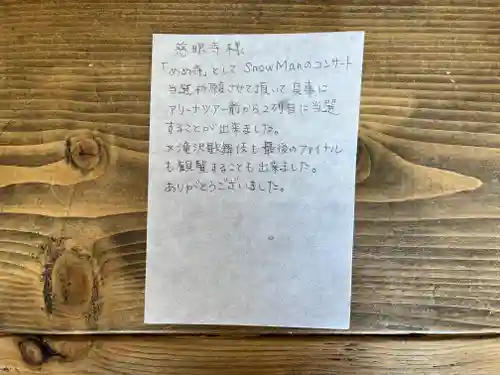 慈眼寺様
「めめ寺」として SnowManのコンサート
当選祈願させて頂いて 見事に
アリーナツアー前から2列目に当選
することが出来ました。
×滝沢歌舞伎も最後のファイナル
も観覧することも出来ました。
ありがとうございました。